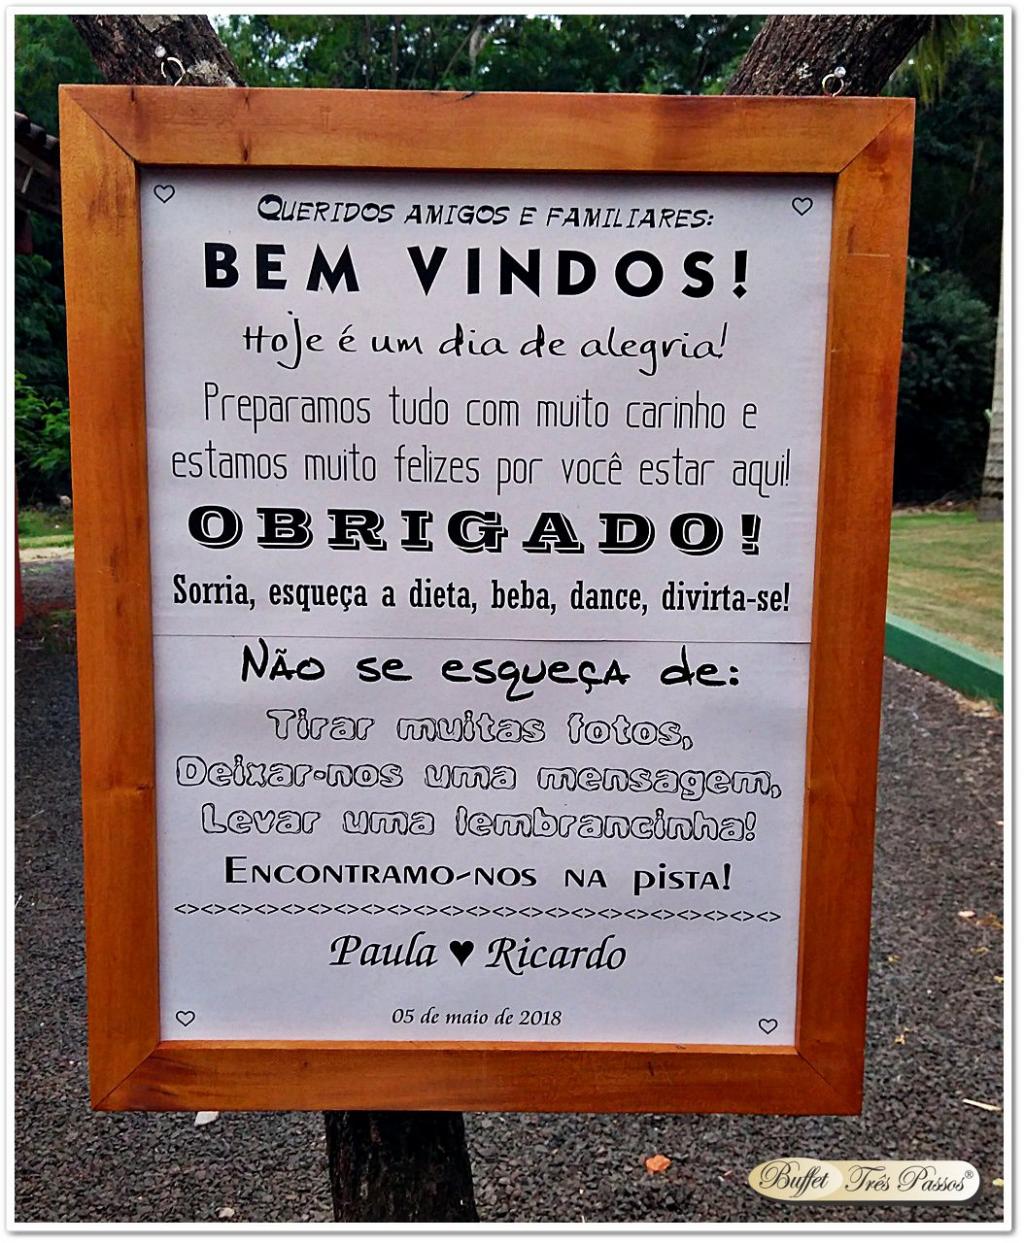 Queridos amigos e familiares:
BEM VINDOS!
Hoje é um dia de alegria!
Preparamos tudo com muito carinho e
estamos muito felizes por você estar aqui!
OBRIGADO!
Sorria, esqueça a dieta, beba, dance, divirta-se!
Não se esqueça de:
Tirar muitas fotos,
Deixar-nos uma mensagem,
Levar uma lembrancinha!
Encontramo-nos na pista!
<><><><><><><><><><><><><><><><><><><><><><><>
Paula ♥ Ricardo
05 de maio de 2018
Buffet Três Passos®